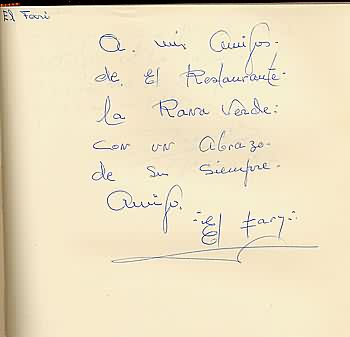 El Fari
A mis Amigos.
de El Restaurante.
la Rana Verde:
con un Abrazo.
de su siempre.
Amigo.
El Fary